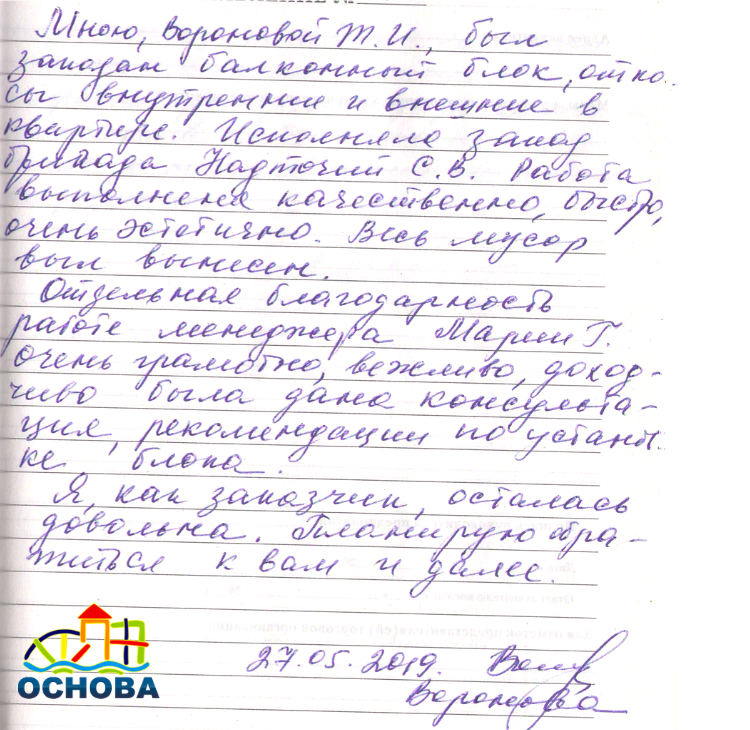 Мною, Вороновой Т.И., был
заказан балконный блок, отко
сы внутренние и внешние в
квартире. Исполняла заказ
бригада Надточий С.В. Работа
выполнена качественно, быстро,
очень эстетично. Весь мусор
был вынесен.
Отдельная благодарность
работе менеджера Марии Г.
очень грамотно, вежливо, доход-
чиво была дана консульта-
ция, рекомендации по установ
ке блока.
Я, как заказчик, осталась
довольна. Планирую обра-
титься к вам и далее.
27.05.2019.
Воронова
ОСНОВА